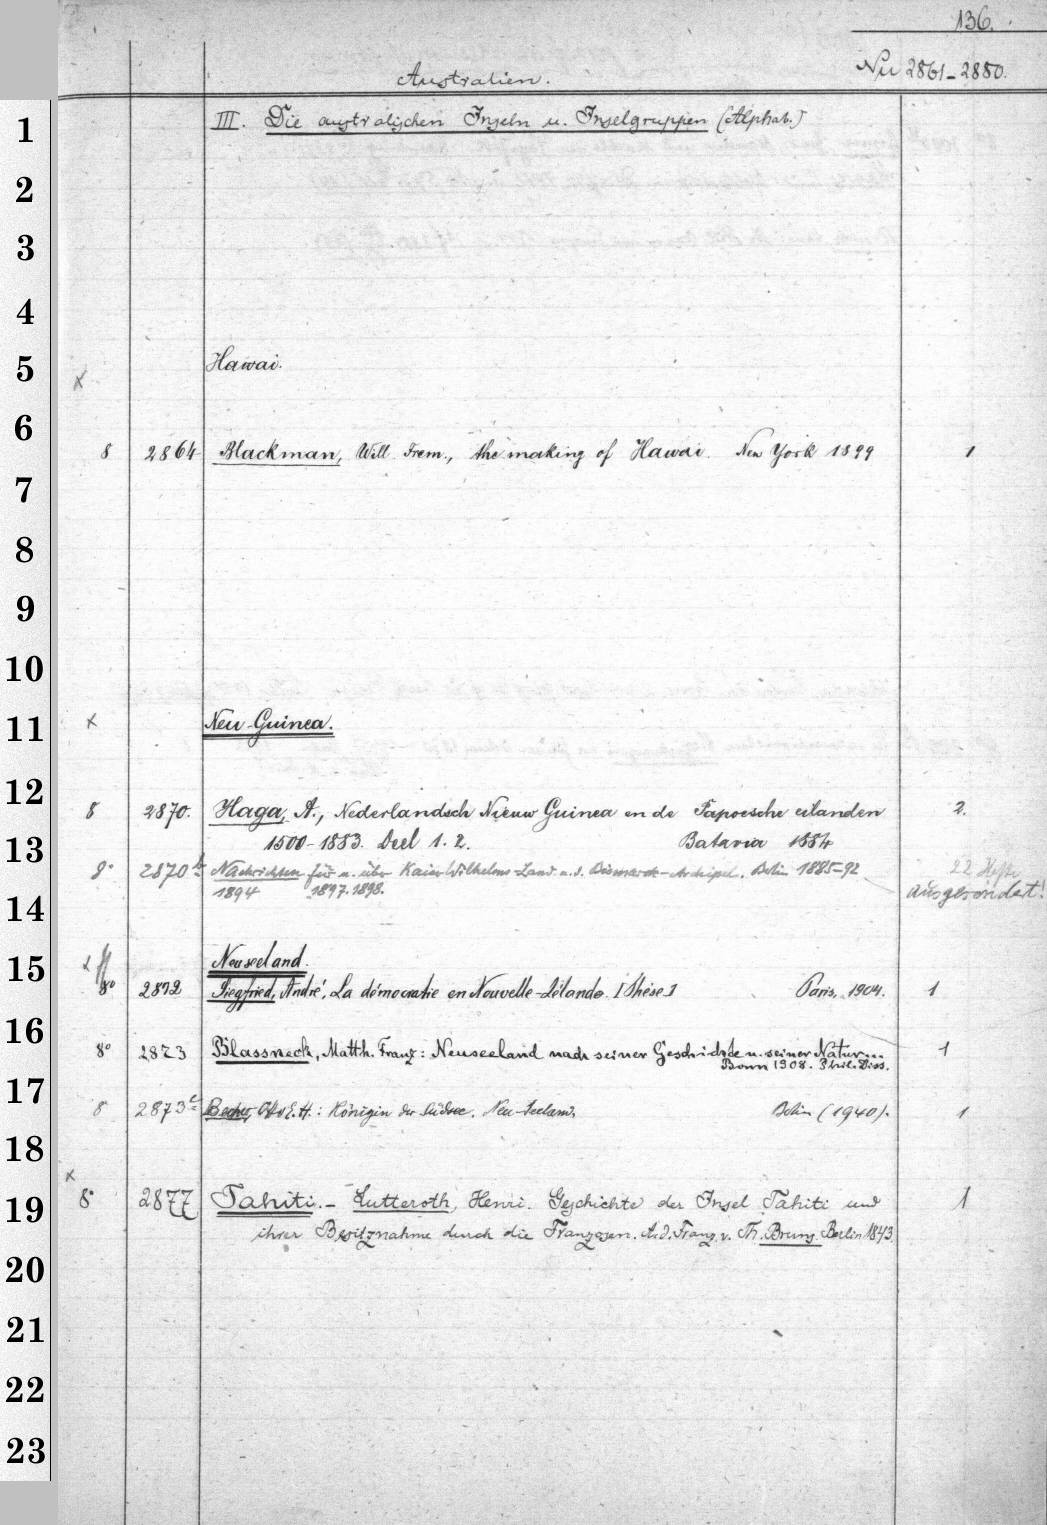 136.
Nu 2861-2880.
Australien.
1
III. Die australischen Inseln u. Inselgruppen (Alphab.)
2
3
4
5
Hawai.
x
6
8 2864 Blackman, Will. Frem., the making of Hawai. New York 1899 1
7
8
9
10
11
x Neu-Guinea.
12
8 2870. Haga, A., Nederlandsch Nieuw Guinea en de Papoesche eilanden 2.
13
1500-1883. Deel 1. 2. Batavia 1884
8° 2870 b Nachrichten für u. über Kaiser Wilhelms-Land u. d. Bismarck-Archipel. Berlin 1885-92 22 Hefte
1894 1897. 1898. ausgesondert!
14
15
Neuseeland.
8° 2872 Siegfried, André, La démocratie en Nouvelle-Zélande. [Thèse.] Paris, 1904. 1
16
8° 2873 Blassneck, Matth. Franz: Neuseeland nach seiner Geschichte u. seiner Natur... 1
Bonn 1908. Phil. Diss.
17
8 2873 c Becher, E. H.: Königin der Südsee. Neu-Seeland. Berlin (1940). 1
18
x
19
8° 2877 Tahiti. - Lutteroth, Henri. Geschichte der Insel Tahiti und 1
ihrer Besitznahme durch die Franzosen. A. d. Franz. v. Th. Bruns. Berlin 1843.
20
21
22
23